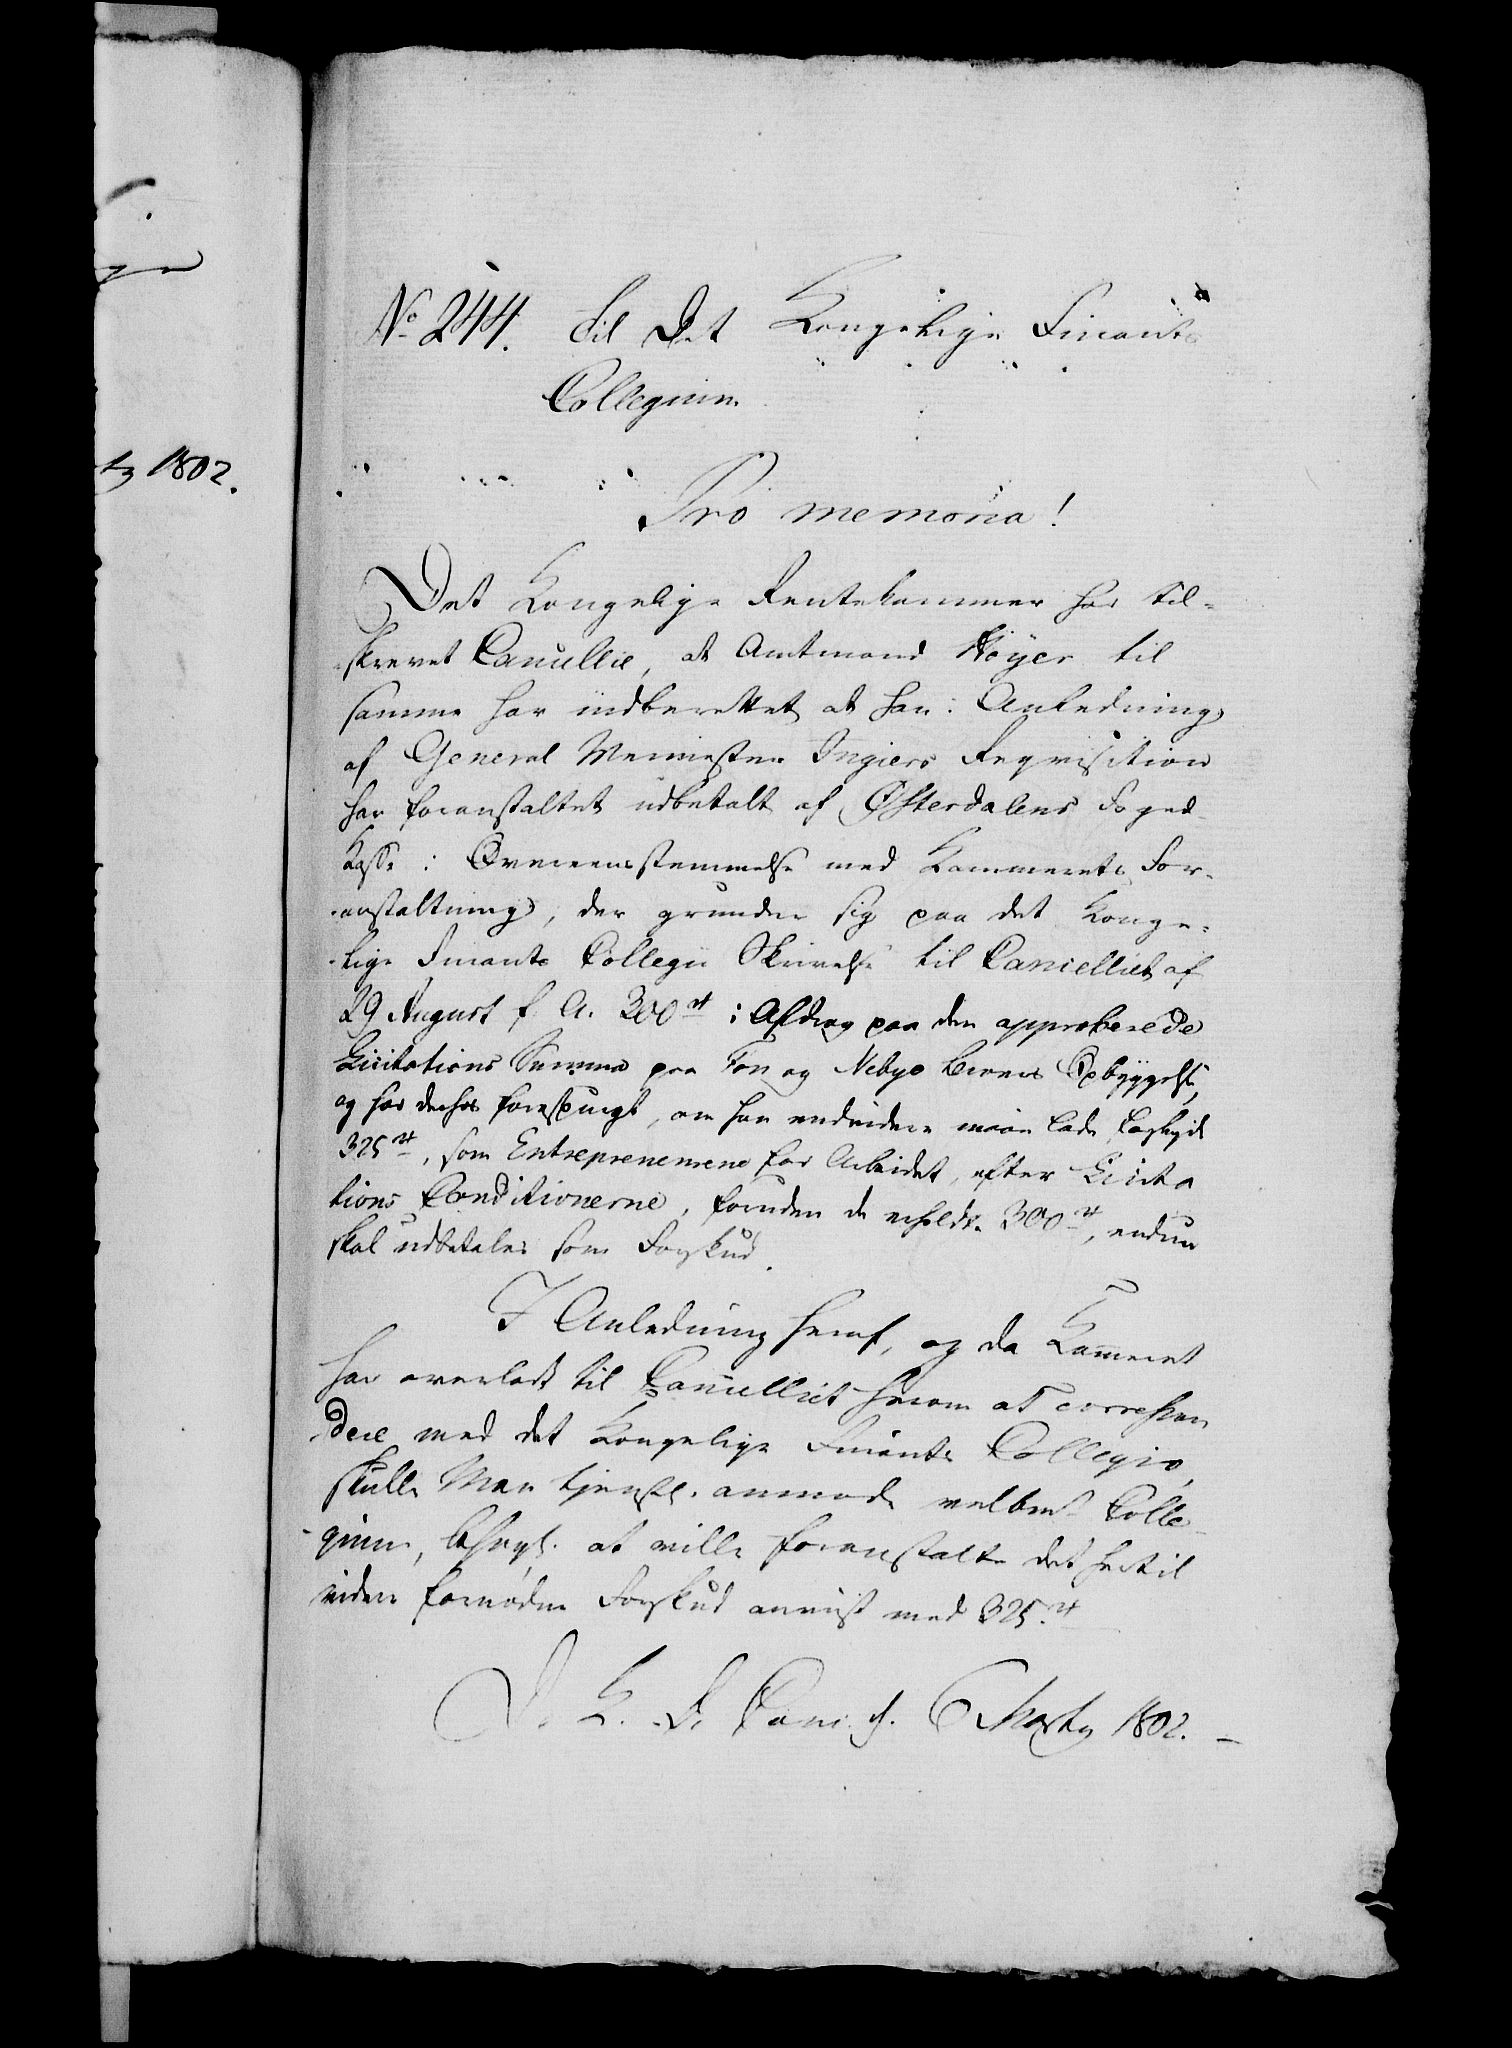 tz 1802.
No 244. Til Det Kongelige Finants
Collegium.
Pro memoria!
Det Kongelige Rentekammer har til-
skrevet Cancellie, at Amtmand Höyer til
samme har indberettet at han i Anledning
af General Veimester Ingiers Reqvisition
har foranstaltet udbetalt af Østerdalens Foged-
Kasse i Overeensstemmelse med Kammerets For-
anstaltning, der grunder sig paa det Konge-
lige Finants Collegii Skrivelse til Cancelliet af
29 August f. A. 300 rd i Afdrag paa den approberede
Licitations Summa paa Fon og Nebye Broers Opbyggelse,
og har derhos forespurgt, om han endvidere maae lade forskyde
325 rd, som Entrepreneurene for Arbeidet, efter Licita
tions Conditionerne, foruden de erholdte 300 rd, endnu
skal udbetales som Forskud.
I Anledning heraf, og da Kammeret
har overladt til Cancelliet herom at correspon
dere med det Kongelige Finants Collegio,
skulle Man tjenstl. anmode velbemt Colle-
gium, behagl. at ville foranstalte det hertil
videre fornødne Forskud anviist med 325 rd
D. K. D. Canc. d. 6 Marty 1802.